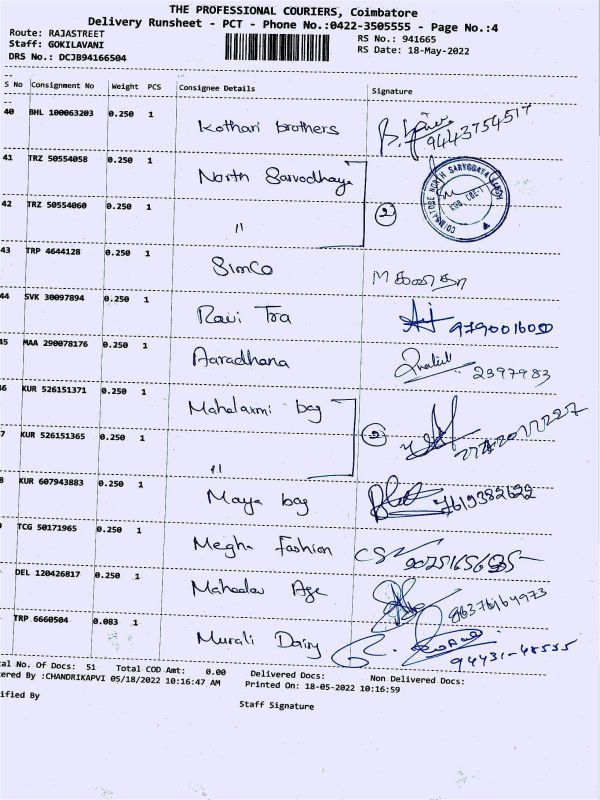 THE PROFESSIONAL COURIERS, Coimbatore
Delivery Runsheet - PCT - Phone No.:0422-3505555 - Page No.:4
Route: RAJASTREET
Staff: GOKILAVANI
DRS No.: DCJB94166504
RS No.: 941665
RS Date: 18-May-2022
S No Consignment No Weight PCS Consignee Details Signature
40 BHL 100063203 0.250 1 Kothari brothers 9443754517
41 TRZ 50554058 0.250 1 North Sarvodhaya
42 TRZ 50554060 0.250 1 " 2
43 TRP 4644128 0.250 1 SimCo
44 SVK 30097894 0.250 1 Ravi Tra
45 MAA 290078176 0.250 1 Aaradhana 2397983
6 KUR 526151371 0.250 1 Mahalaxmi bag
7 KUR 526151365 0.250 1 " 2
8 KUR 607943883 0.250 1 Maya bag 7619382622
TCG 50171965 0.250 1 Megha Fashion
DEL 120426817 0.250 1 Mahadev Age
TRP 6660504 0.083 1 Murali Dairy 94431-48555
al No. Of Docs: 51 Total COD Amt: 0.00 Delivered Docs: Non Delivered Docs:
ered By :CHANDRIKAPVI 05/18/2022 10:16:47 AM Printed On: 18-05-2022 10:16:59
ified By Staff Signature